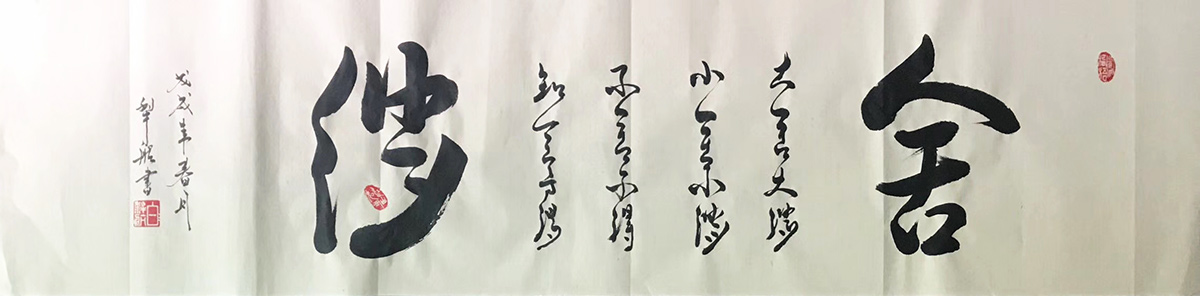 舍
大舍大得
小舍小得
不舍不得
知舍方得
得
戊戌年春月
書